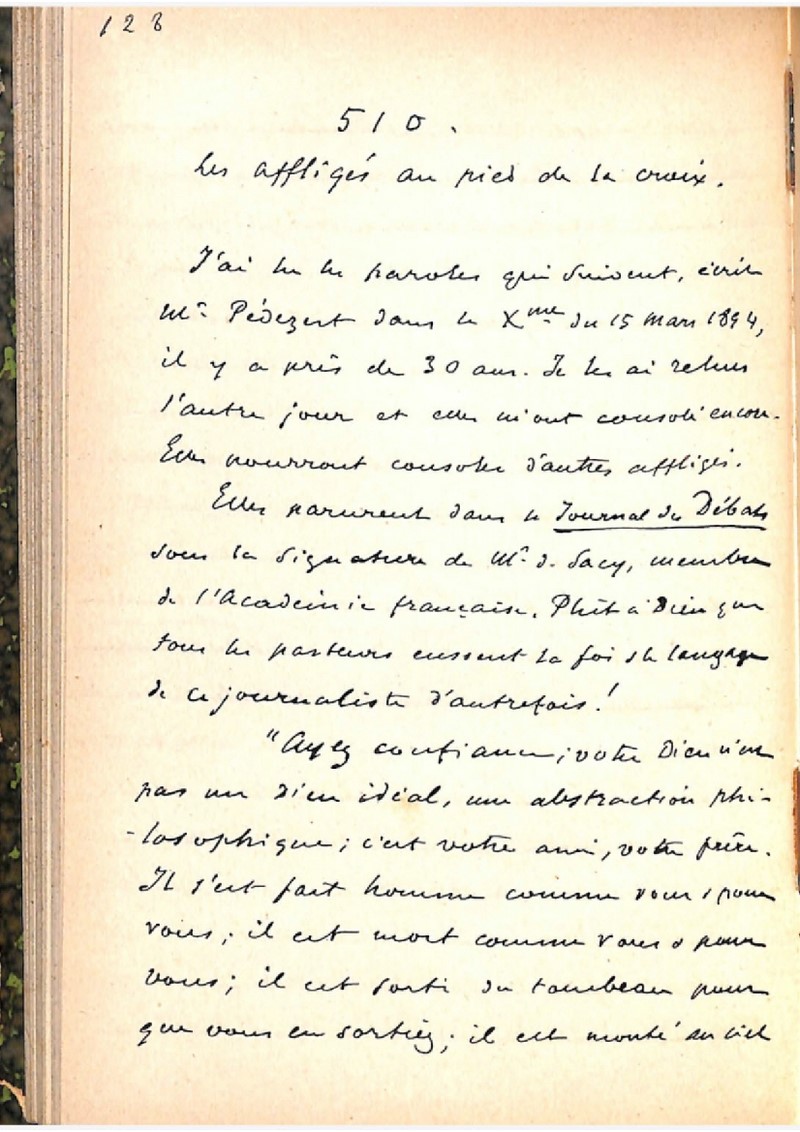 128
510.
Les affligés au pied de la croix.
J'ai lu les paroles qui suivent, écrit
Mr Pédezert dans le Xme du 15 Mars 1894,
il y a près de 30 ans. Je les ai relues
l'autre jour et elles m'ont consolé encore.
Elles pourront consoler d'autres affligés.
Elles parurent dans le Journal des Débats
sous la signature de Mr. de Sacy, membre
de l'Académie française. Plût à Dieu que
tous les pasteurs eussent la foi & le langage
de ce journaliste d'autrefois!
"Ayez confiance; votre Dieu n'est
pas un Dieu idéal, une abstraction phi-
-losophique; c'est votre ami, votre frère.
Il s'est fait homme comme vous & pour
vous; il est mort comme vous & pour
vous; il est sorti du tombeau pour
que vous en sortiez; il est monté au ciel